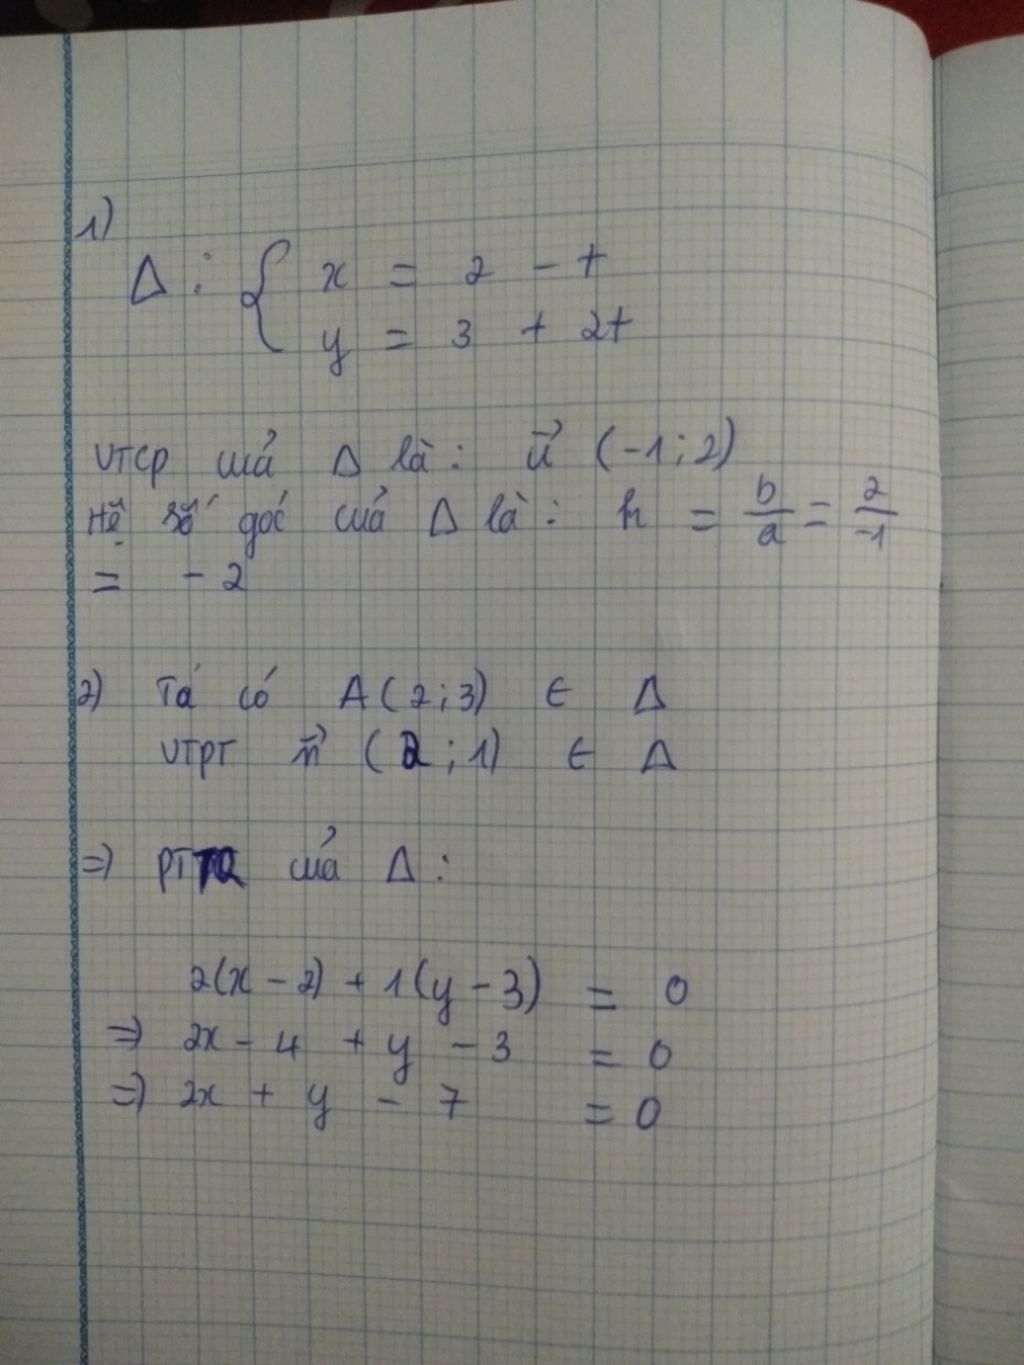 1)
Δ : { x = 2 - t
y = 3 + 2t
VTCP của Δ là : u⃗ (-1 ; 2)
Hệ số góc của Δ là : k = b/a = 2/-1
= - 2
2) Ta có A(2 ; 3) ∈ Δ
VTPT n⃗ (2 ; 1) ∈ Δ
=) PTTQ của Δ :
2(x - 2) + 1(y - 3) = 0
=) 2x - 4 + y - 3 = 0
=) 2x + y - 7 = 0